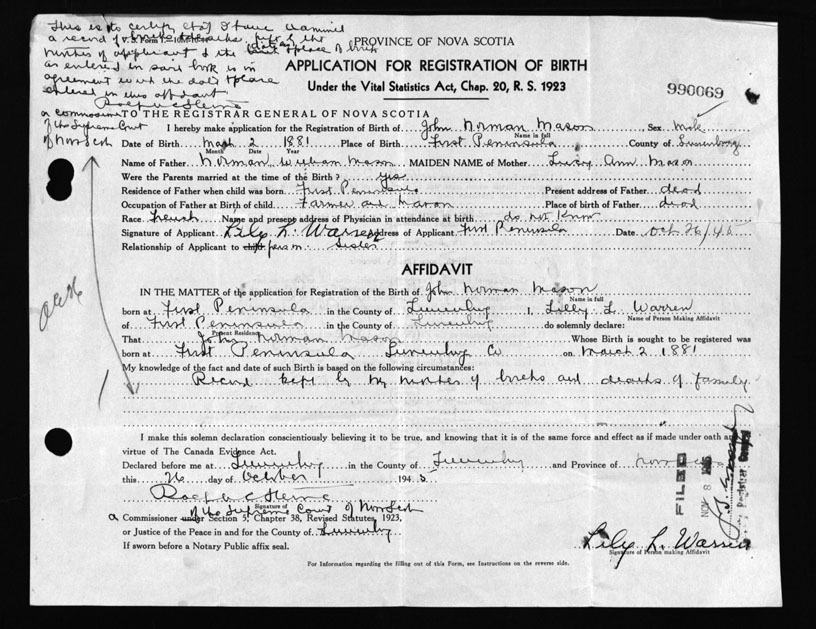 This is to certify that I have examined
a record of births & deaths kept by the
V. S. Form 1.
mother of applicant & the date & place of birth
as entered in said book is in
agreement with the date & place
entered in this affidavit
a commissioner
of the Supreme Court
of Nova Scotia
PROVINCE OF NOVA SCOTIA
APPLICATION FOR REGISTRATION OF BIRTH
Under the Vital Statistics Act, Chap. 20, R. S. 1923
990069
TO THE REGISTRAR GENERAL OF NOVA SCOTIA
I hereby make application for the Registration of Birth of John Norman Mason Sex Male
Name in full
Date of Birth March 2 1881 Place of Birth First Peninsula County of Lunenburg
Month Date Year
Name of Father Norman William Mason MAIDEN NAME of Mother Lucy Ann Mason
Were the Parents married at the time of the Birth? yes
Residence of Father when child was born First Peninsula Present address of Father dead
Occupation of Father at Birth of child Farmer and Mason Place of birth of Father dead
Race French Name and present address of Physician in attendance at birth do not know
Signature of Applicant Lily L. Warren Address of Applicant First Peninsula Date Oct 26/45
Relationship of Applicant to child person Sister
AFFIDAVIT
IN THE MATTER of the application for Registration of the Birth of John Norman Mason
Name in full
born at First Peninsula in the County of Lunenburg I, Lilly L. Warren
Name of Person Making Affidavit
of First Peninsula in the County of Lunenburg do solemnly declare:
Present Residence
That John Norman Mason Whose Birth is sought to be registered was
born at First Peninsula Lunenburg Co on March 2 1881
My knowledge of the fact and date of such Birth is based on the following circumstances:
Record kept by my mother of births and deaths of family
I make this solemn declaration conscientiously believing it to be true, and knowing that it is of the same force and effect as if made under oath and
virtue of The Canada Evidence Act.
Declared before me at Lunenburg in the County of Lunenburg and Province of Nova Scotia
this 26 day of October 1945
Signature of
of the Supreme Court of Nova Scotia
a Commissioner under Section 5, Chapter 38, Revised Statutes, 1923,
or Justice of the Peace in and for the County of Lunenburg
If sworn before a Notary Public affix seal.
FILED
NOV 8
Lily L. Warren
Signature of Person making Affidavit
For Information regarding the filling out of this Form, see Instructions on the reverse side.